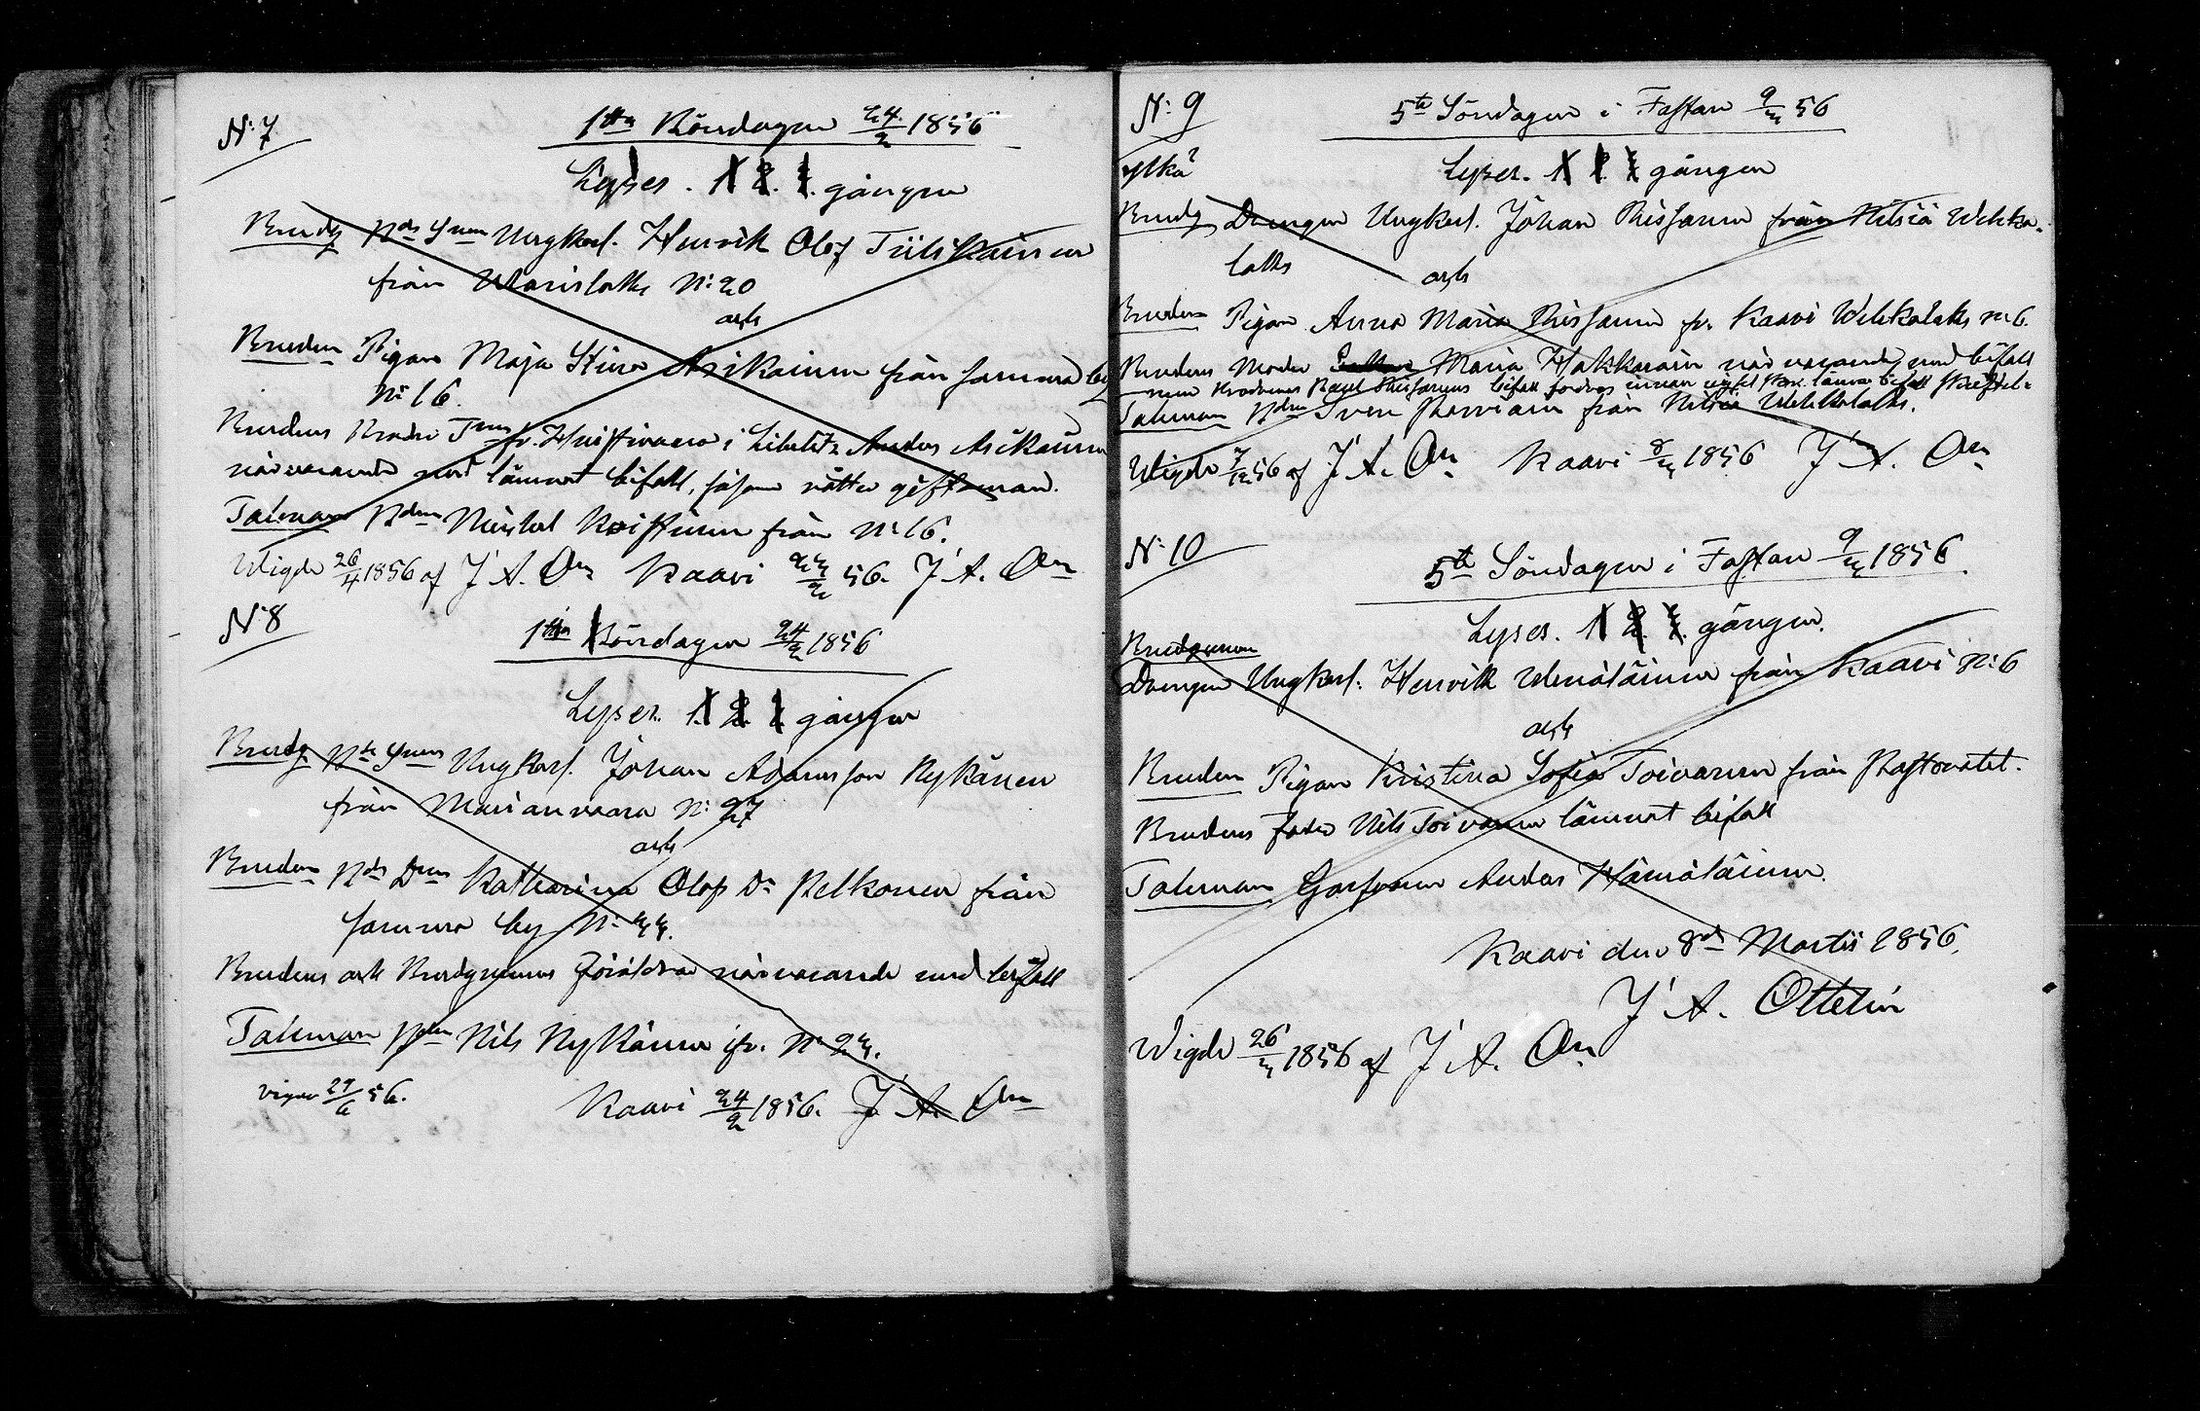 N:7
1sta Böndagen 24/2 1856
Lyses. 1 2. 3. gången
Brudg Nds Snen Ungkarl. Henrik Olof Tiilikainen
från Warislaks N:20
och
Bruden Pigan Maja Stina Asikainen från samma by
N:16.
Brudens Broder från i Libelits Anders Asikainen
närvarande med lämnat bifall, såsom rätter giftoman.
Talman Ndm Michel från N:16.
Wigde 26/4 1856 af J A. On Kaavi 23/2 56. J A. On
N:8
1sta Böndagen 24/2 1856
Lyses. 1. 2. 3 gången
Brudg Nds Snen Ungkarl. Johan Adamsson Nykänen
från Marianvaara N:27
och
Bruden Nds Dren Katharina Olofs Dr Pelkonen från
samma by N:
Brudens och Brudgummens Föräldrar närvarande med bifall
Talman Ndm Nils Nykänen ifr. N:23.
vigde 29/6 56.
Kaavi 24/2 1856. J A. On
N:9
5te Söndagen i Fastan 9/3 56
Lyses. 1 2 3 gången
Brudg Drengen Ungkarl. Johan Rissanen från Nilsiä Wehka-
laks
och
Bruden Pigan Anna Maria Rissanen fr. Kaavi Wehkalaks N:6.
Brudens Moder Maria Hakkarain närvarande med bifall
men Brodrens Rissanens bifall fordras innan
Talman Ndm Sven från Nilsiä Wehkalaks.
Wigde 7/12 56 af J A. On Kaavi 8/3 1856 J A. On
N:10
5te Söndagen i Fastan 9/3 1856.
Lyses. 1 2. 3. gången.
Brudgumen
Drengen Ungkarl. Henrik Hämäläinen från Kaavi N:6
och
Bruden Pigan Kristina Sofia Toivanen från Pastoratet.
Brudens Fader Nils Toivanen lämnat bifall
Talman Anders Hämäläinen.
Kaavi den 8de Martii 1856.
J A. Ottelin
Wigde 26/3 1856 af J A. On